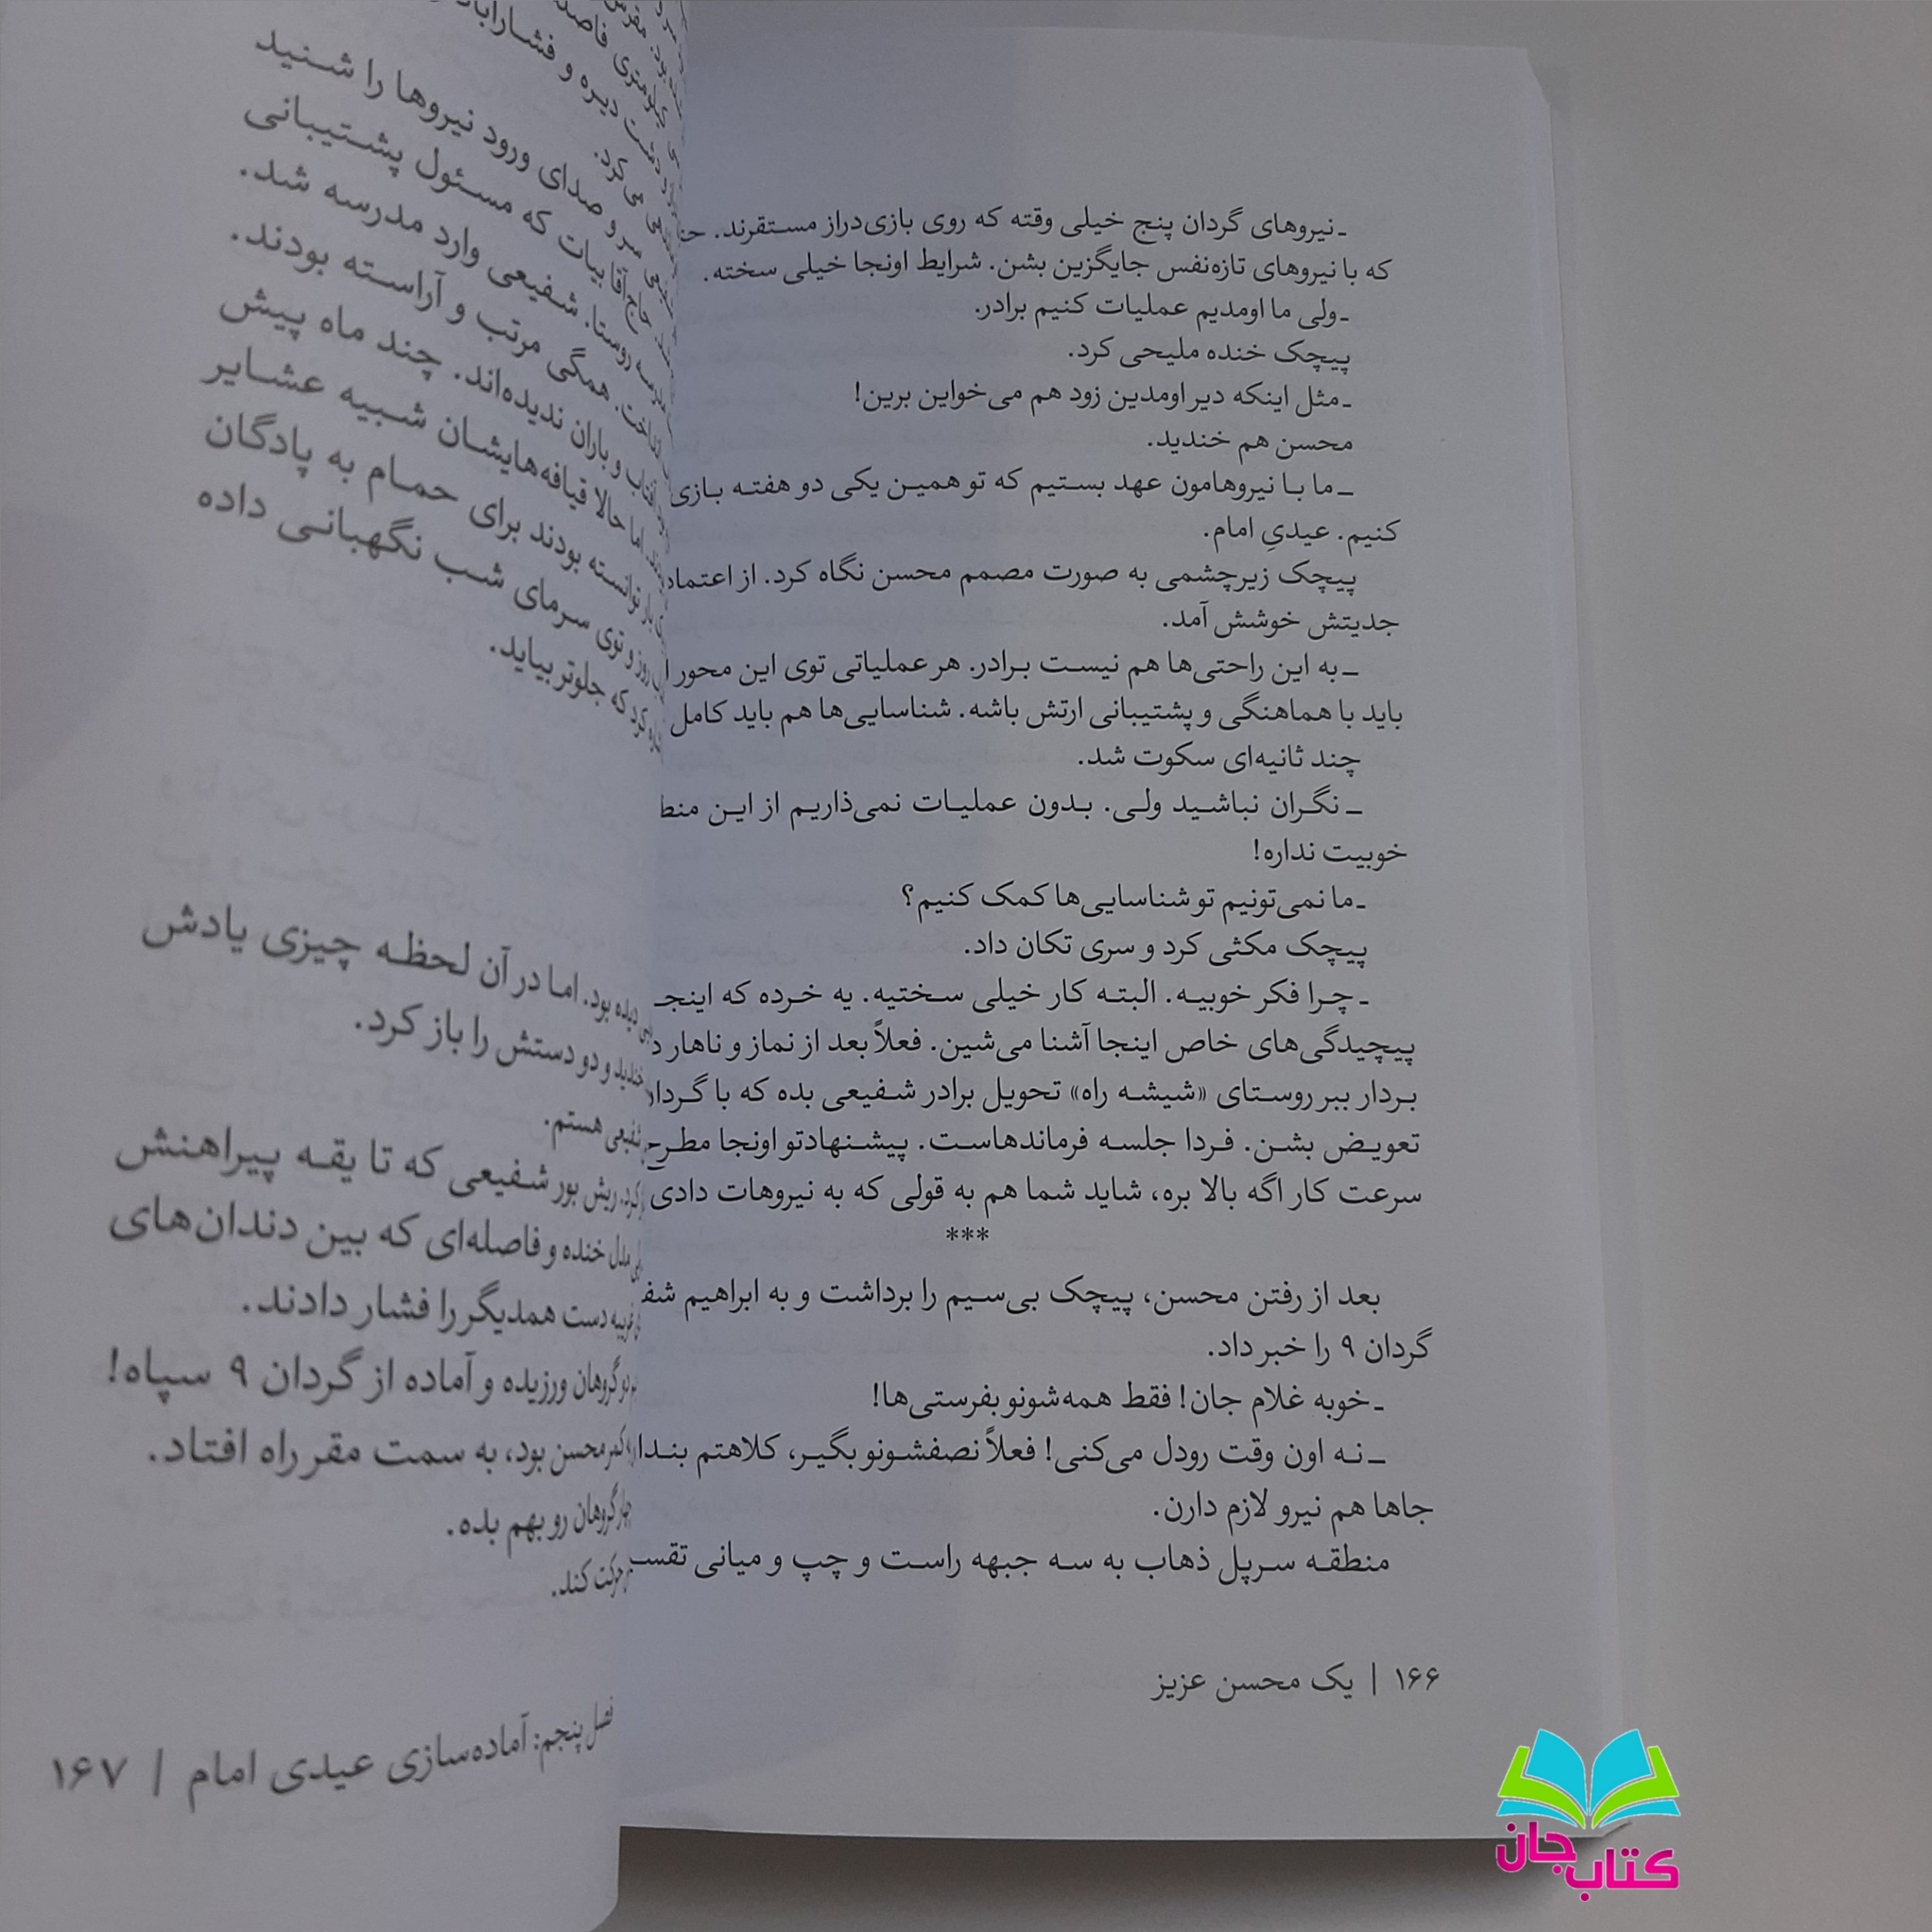 ـ نیروهای گردان پنج خیلی وقته که روی بازی‌دراز مستقرند.
که با نیروهای تازه‌نفس جایگزین بشن. شرایط اونجا خیلی سخته.
ـ ولی ما اومدیم عملیات کنیم برادر.
پیچک خنده ملیحی کرد.
ـ مثل اینکه دیر اومدین زود هم می‌خواین برین!
محسن هم خندید.
ـ ما با نیروهامون عهد بستیم که تو همین یکی دو هفته بازی
کنیم. عیدیِ امام.
پیچک زیرچشمی به صورت مصمم محسن نگاه کرد. از
جدیتش خوشش آمد.
ـ به این راحتی‌ها هم نیست برادر. هر عملیاتی توی این محور
باید با هماهنگی و پشتیبانی ارتش باشه. شناسایی‌ها هم باید کامل
چند ثانیه‌ای سکوت شد.
ـ نگران نباشید ولی. بدون عملیات نمی‌ذاریم از این
خوبیت نداره!
ـ ما نمی‌تونیم تو شناسایی‌ها کمک کنیم؟
پیچک مکثی کرد و سری تکان داد.
ـ چرا فکر خوبیه. البته کار خیلی سختیه. یه خرده که
پیچیدگی‌های خاص اینجا آشنا می‌شین. فعلاً بعد از نماز و ناهار
بردار ببر روستای «شیشه راه» تحویل برادر شفیعی بده که با
تعویض بشن. فردا جلسه فرمانده‌هاست. پیشنهادتو اونجا
سرعت کار اگه بالا بره، شاید شما هم به قولی که به نیروهات دادی
***
بعد از رفتن محسن، پیچک بی‌سیم را برداشت و به ابراهیم
گردان ۹ را خبر داد.
ـ خوبه غلام جان! فقط همه‌شونو بفرستی‌ها!
ـ نه اون وقت رودل می‌کنی! فعلاً نصفشونو بگیر، کلاهتم
جاها هم نیرو لازم دارن.
منطقه سرپل ذهاب به سه جبهه راست و چپ و میانی
۱۶۶ | یک محسن عزیز
دیره و
می‌کرد.
سر و صدای ورود نیروها را شنید
حاج‌آقا بیات که مسئول پشتیبانی
روستا. شفیعی وارد مدرسه شد.
همگی مرتب و آراسته بودند.
آفتاب و باران ندیده‌اند. چند ماه پیش
اما حالا قیافه‌هایشان شبیه عشایر
بار توانسته بودند برای حمام به پادگان
روز و توی سرمای شب نگهبانی داده
کرد که جلوتر بیاید.
دیده بود. اما در آن لحظه چیزی یادش
خندید و دو دستش را باز کرد.
شفیعی هستم.
ریش بور شفیعی که تا یقه پیراهنش
مدل خنده و فاصله‌ای که بین دندان‌های
غریبه دست همدیگر را فشار دادند.
دو گروهان ورزیده و آماده از گردان ۹ سپاه!
محسن بود، به سمت مقر راه افتاد.
چهار گروهان رو بهم بده.
حرکت کند.
فصل پنجم: آماده‌سازی عیدی امام / ۱۶۷
کتاب جان